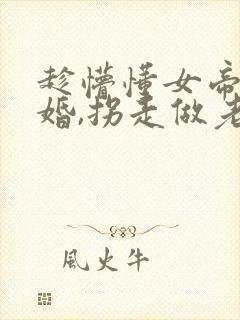 趁懵懂女帝
婚,拐走做老
風火牛